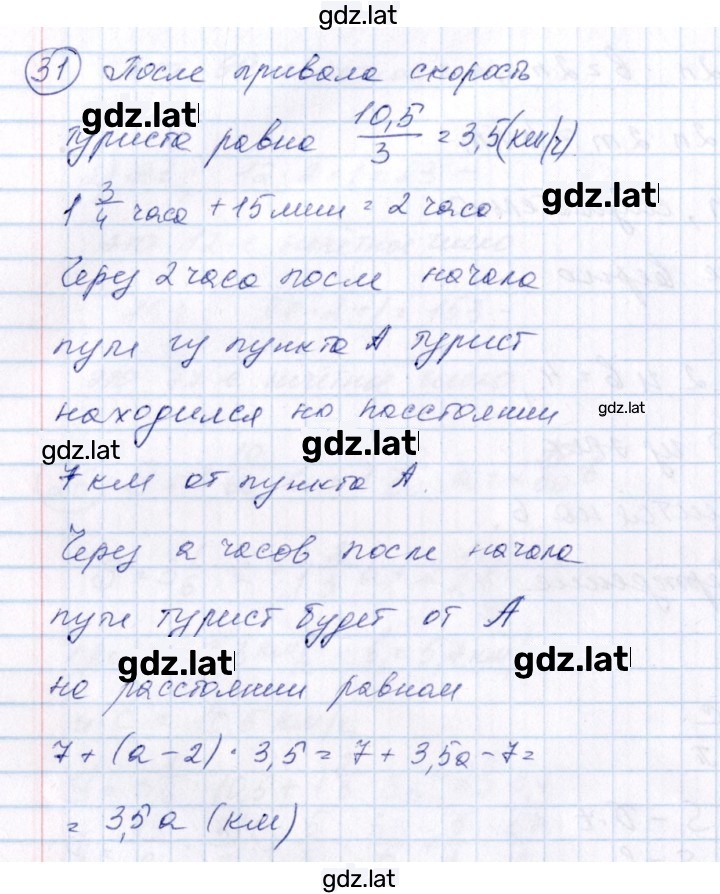 gdz.lat
31 После привала скорость
gdz.lat
туриста равна 10,5/3 = 3,5 (км/ч)
gdz.lat
1 3/4 часа + 15 мин = 2 часа
Через 2 часа после начала
пути из пункта А турист
находился на расстоянии
gdz.lat
gdz.lat
gdz.lat
7 км от пункта А.
Через a часов после начала
пути турист будет от А
gdz.lat
gdz.lat
на расстоянии равном
7 + (a - 2) · 3,5 = 7 + 3,5a - 7 =
= 3,5 a (км)
gdz.lat